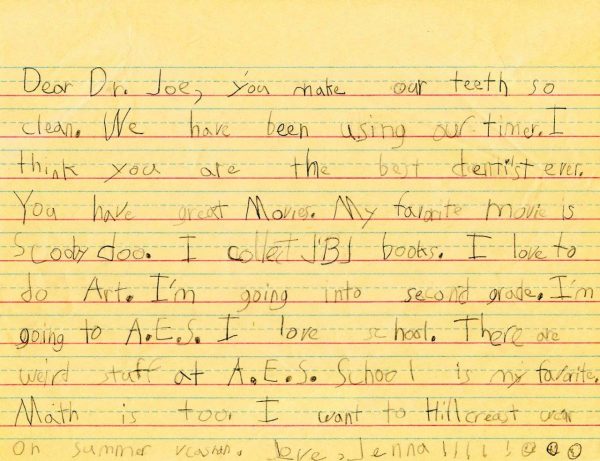 Dear Dr. Joe, you make our teeth so
clean. We have been using our timer. I
think you are the best dentist ever.
You have great Movies. My favorite movie is
Scooby doo. I collect JBJ books. I love to
do Art. I'm going into second grade. I'm
going to A.E.S. I love school. There are
weird stuff at A.E.S. School is my favorite.
Math is too. I want to Hillcreast
on summer Love, Jenna!!!!!